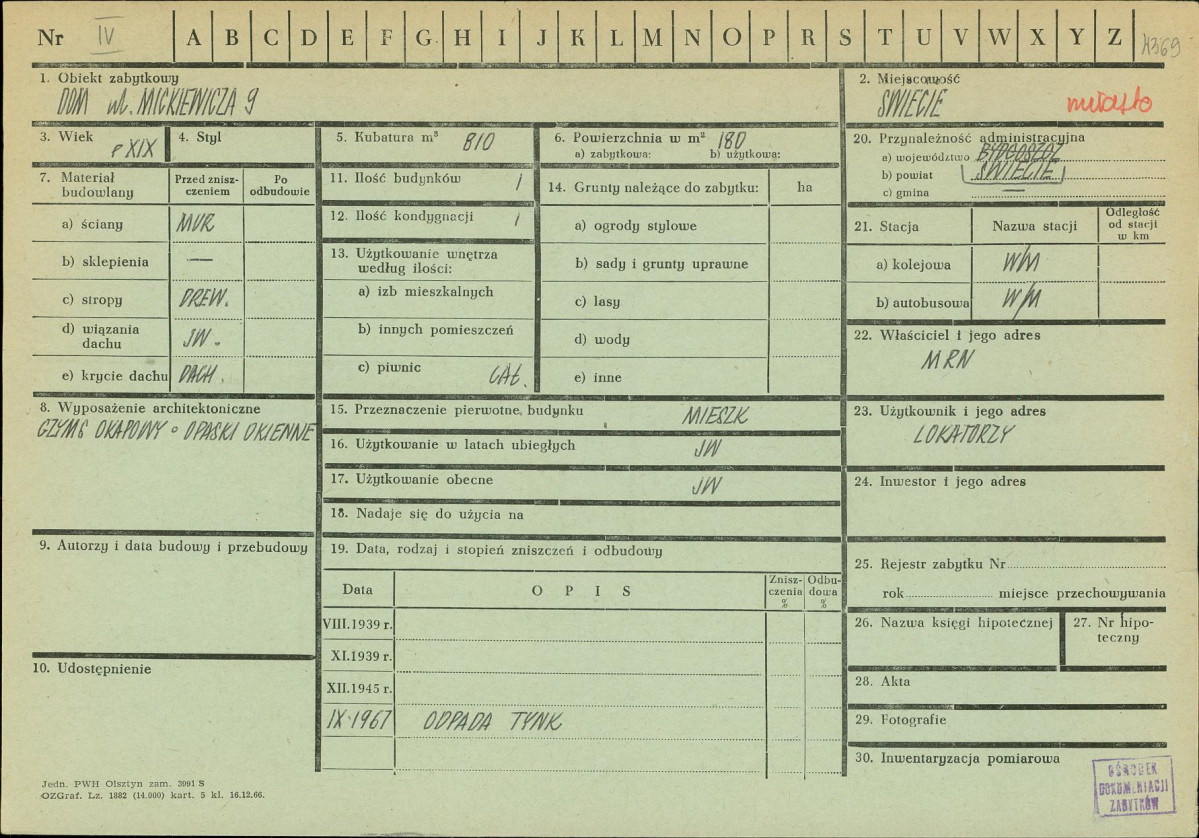 Nr IV A B C D E F G H I J K L M N O P R S T U V W X Y Z 4369
1. Obiekt zabytkowy
DOM ul. MICKIEWICZA 9
2. Miejscowość
ŚWIECIE miasto
3. Wiek
P XIX
4. Styl
5. Kubatura m³ 810
6. Powierzchnia w m² 180
a) zabytkowa: b) użytkowa:
20. Przynależność administracyjna
a) województwo BYDGOSZCZ
b) powiat ŚWIECIE
c) gmina —
7. Materiał budowlany
Przed zniszczeniem
Po odbudowie
a) ściany MUR
b) sklepienia —
c) stropy DREW.
d) wiązania dachu JW.
e) krycie dachu DACH.
11. Ilość budynków 1
12. Ilość kondygnacji 1
13. Użytkowanie wnętrza
według ilości:
a) izb mieszkalnych
b) innych pomieszczeń
c) piwnic CAŁ.
14. Grunty należące do zabytku: ha
a) ogrody stylowe
b) sady i grunty uprawne
c) lasy
d) wody
e) inne
21. Stacja
Nazwa stacji
Odległość
od stacji
w km
a) kolejowa W/M
b) autobusowa W/M
22. Właściciel i jego adres
MRN
8. Wyposażenie architektoniczne
GZYMS OKAPOWY • OPASKI OKIENNE
15. Przeznaczenie pierwotne budynku MIESZK
16. Użytkowanie w latach ubiegłych JW
17. Użytkowanie obecne JW
18. Nadaje się do użycia na
23. Użytkownik i jego adres
LOKATORZY
24. Inwestor i jego adres
9. Autorzy i data budowy i przebudowy
19. Data, rodzaj i stopień zniszczeń i odbudowy
Data
O P I S
Zniszczenia
%
Odbudowa
%
VIII.1939 r.
XI.1939 r.
XII.1945 r.
IX·1967 ODPADA TYNK
25. Rejestr zabytku Nr
rok miejsce przechowywania
26. Nazwa księgi hipotecznej
27. Nr hipoteczny
10. Udostępnienie
28. Akta
29. Fotografie
30. Inwentaryzacja pomiarowa
Jedn. PWH Olsztyn zam. 3991 S
OZGraf. Lz. 1882 (14.000) kart. 5 kl. 16.12.66.
OŚRODEK
DOKUMENTACJI
ZABYTKÓW